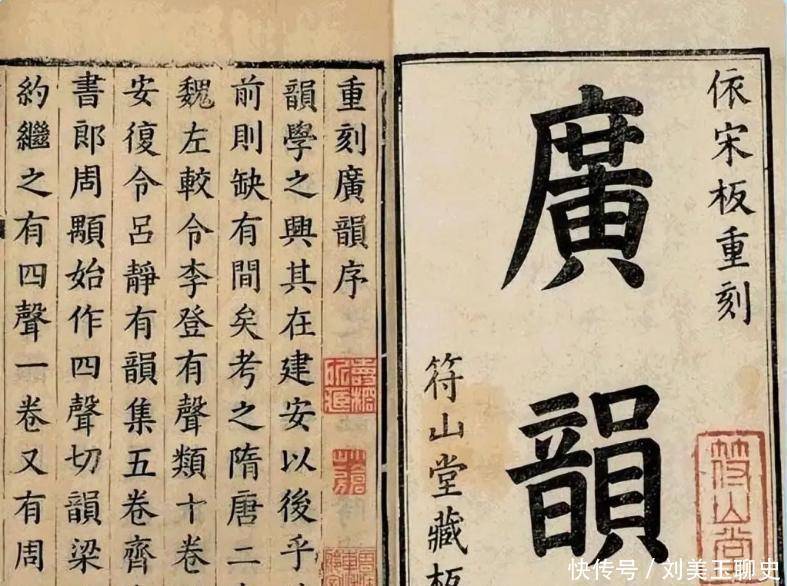 依宋板重刻
廣韻
符山堂藏板
符山堂
重刻廣韻序
韻學之興其在建安以後乎
前則缺有間矣考之隋唐二
魏左較令李登有聲類十卷
安復令呂靜有韻集五卷齊
書郎周顒始作四聲切韻梁
約繼之有四聲一卷又有周
快传号 / 刘美玉聊史